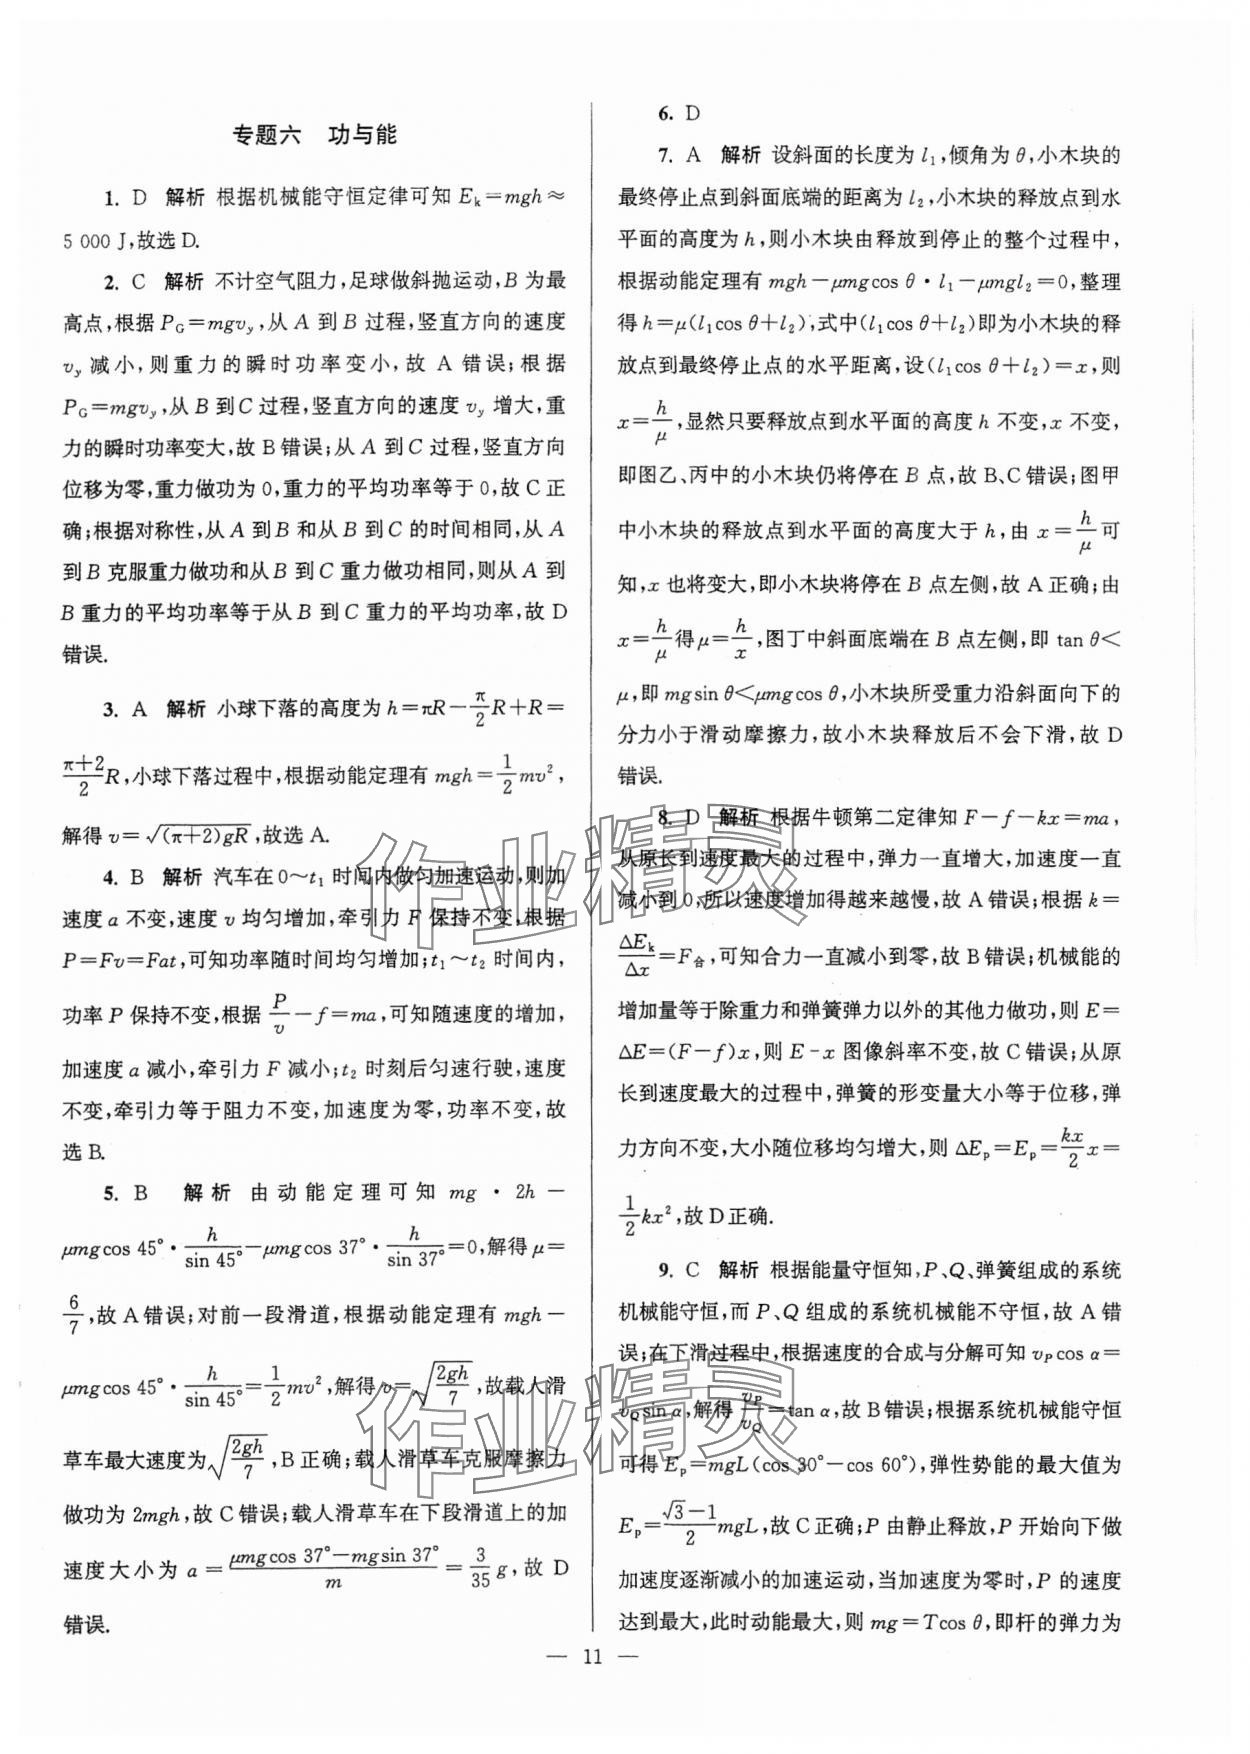 专题六　功与能
1. D　解析　根据机械能守恒定律可知 Eₖ=mgh≈
5 000 J,故选 D.
2. C　解析　不计空气阻力,足球做斜抛运动,B 为最
高点,根据 P_G=mgv_y,从 A 到 B 过程,竖直方向的速度
v_y 减小,则重力的瞬时功率变小,故 A 错误;根据
P_G=mgv_y,从 B 到 C 过程,竖直方向的速度 v_y 增大,重
力的瞬时功率变大,故 B 错误;从 A 到 C 过程,竖直方向
位移为零,重力做功为 0,重力的平均功率等于 0,故 C 正
确;根据对称性,从 A 到 B 和从 B 到 C 的时间相同,从 A
到 B 克服重力做功和从 B 到 C 重力做功相同,则从 A 到
B 重力的平均功率等于从 B 到 C 重力的平均功率,故 D
错误.
3. A　解析　小球下落的高度为 h=πR−π/2 R+R=
(π+2)/2 R,小球下落过程中,根据动能定理有 mgh=1/2 mv²,
解得 v=√((π+2)gR),故选 A.
4. B　解析　汽车在 0～t₁ 时间内做匀加速运动,则加
速度 a 不变,速度 v 均匀增加,牵引力 F 保持不变,根据
P=Fv=Fat,可知功率随时间均匀增加;t₁～t₂ 时间内,
功率 P 保持不变,根据 P/v−f=ma,可知随速度的增加,
加速度 a 减小,牵引力 F 减小;t₂ 时刻后匀速行驶,速度
不变,牵引力等于阻力不变,加速度为零,功率不变,故
选 B.
5. B　解析　由动能定理可知 mg·2h−
μmgcos 45°·h/sin 45°−μmgcos 37°·h/sin 37°=0,解得 μ=
6/7,故 A 错误;对前一段滑道,根据动能定理有 mgh−
μmgcos 45°·h/sin 45°=1/2 mv²,解得 v=√(2gh/7),故载人滑
草车最大速度为√(2gh/7),B 正确;载人滑草车克服摩擦力
做功为 2mgh,故 C 错误;载人滑草车在下段滑道上的加
速度大小为 a=(μmgcos 37°−mgsin 37°)/m=3/35 g,故 D
错误.
6. D
7. A　解析　设斜面的长度为 l₁,倾角为 θ,小木块的
最终停止点到斜面底端的距离为 l₂,小木块的释放点到水
平面的高度为 h,则小木块由释放到停止的整个过程中,
根据动能定理有 mgh−μmgcos θ·l₁−μmgl₂=0,整理
得 h=μ(l₁cos θ+l₂),式中(l₁cos θ+l₂)即为小木块的释
放点到最终停止点的水平距离,设(l₁cos θ+l₂)=x,则
x=h/μ,显然只要释放点到水平面的高度 h 不变,x 不变,
即图乙、丙中的小木块仍将停在 B 点,故 B、C 错误;图甲
中小木块的释放点到水平面的高度大于 h,由 x=h/μ可
知,x 也将变大,即小木块将停在 B 点左侧,故 A 正确;由
x=h/μ得 μ=h/x,图丁中斜面底端在 B 点左侧,即 tan θ<
μ,即 mgsin θ<μmgcos θ,小木块所受重力沿斜面向下的
分力小于滑动摩擦力,故小木块释放后不会下滑,故 D
错误.
8. D　解析　根据牛顿第二定律知 F−f−kx=ma,
从原长到速度最大的过程中,弹力一直增大,加速度一直
减小到 0,所以速度增加得越来越慢,故 A 错误;根据 k=
ΔEₖ/Δx=F合,可知合力一直减小到零,故 B 错误;机械能的
增加量等于除重力和弹簧弹力以外的其他力做功,则 E=
ΔE=(F−f)x,则 E-x 图像斜率不变,故 C 错误;从原
长到速度最大的过程中,弹簧的形变量大小等于位移,弹
力方向不变,大小随位移均匀增大,则 ΔEₚ=Eₚ=kx/2 x=
1/2 kx²,故 D 正确.
9. C　解析　根据能量守恒知,P、Q、弹簧组成的系统
机械能守恒,而 P、Q 组成的系统机械能不守恒,故 A 错
误;在下滑过程中,根据速度的合成与分解可知 v_P cos α=
v_Q sin α,解得 v_P/v_Q=tan α,故 B 错误;根据系统机械能守恒
可得 Eₚ=mgL(cos 30°−cos 60°),弹性势能的最大值为
Eₚ=(√3−1)/2 mgL,故 C 正确;P 由静止释放,P 开始向下做
加速度逐渐减小的加速运动,当加速度为零时,P 的速度
达到最大,此时动能最大,则 mg=Tcos θ,即杆的弹力为
— 11 —
作业精灵
作业精灵